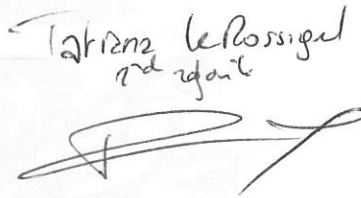 Tatiana Le Rossignol
2nd adjoint